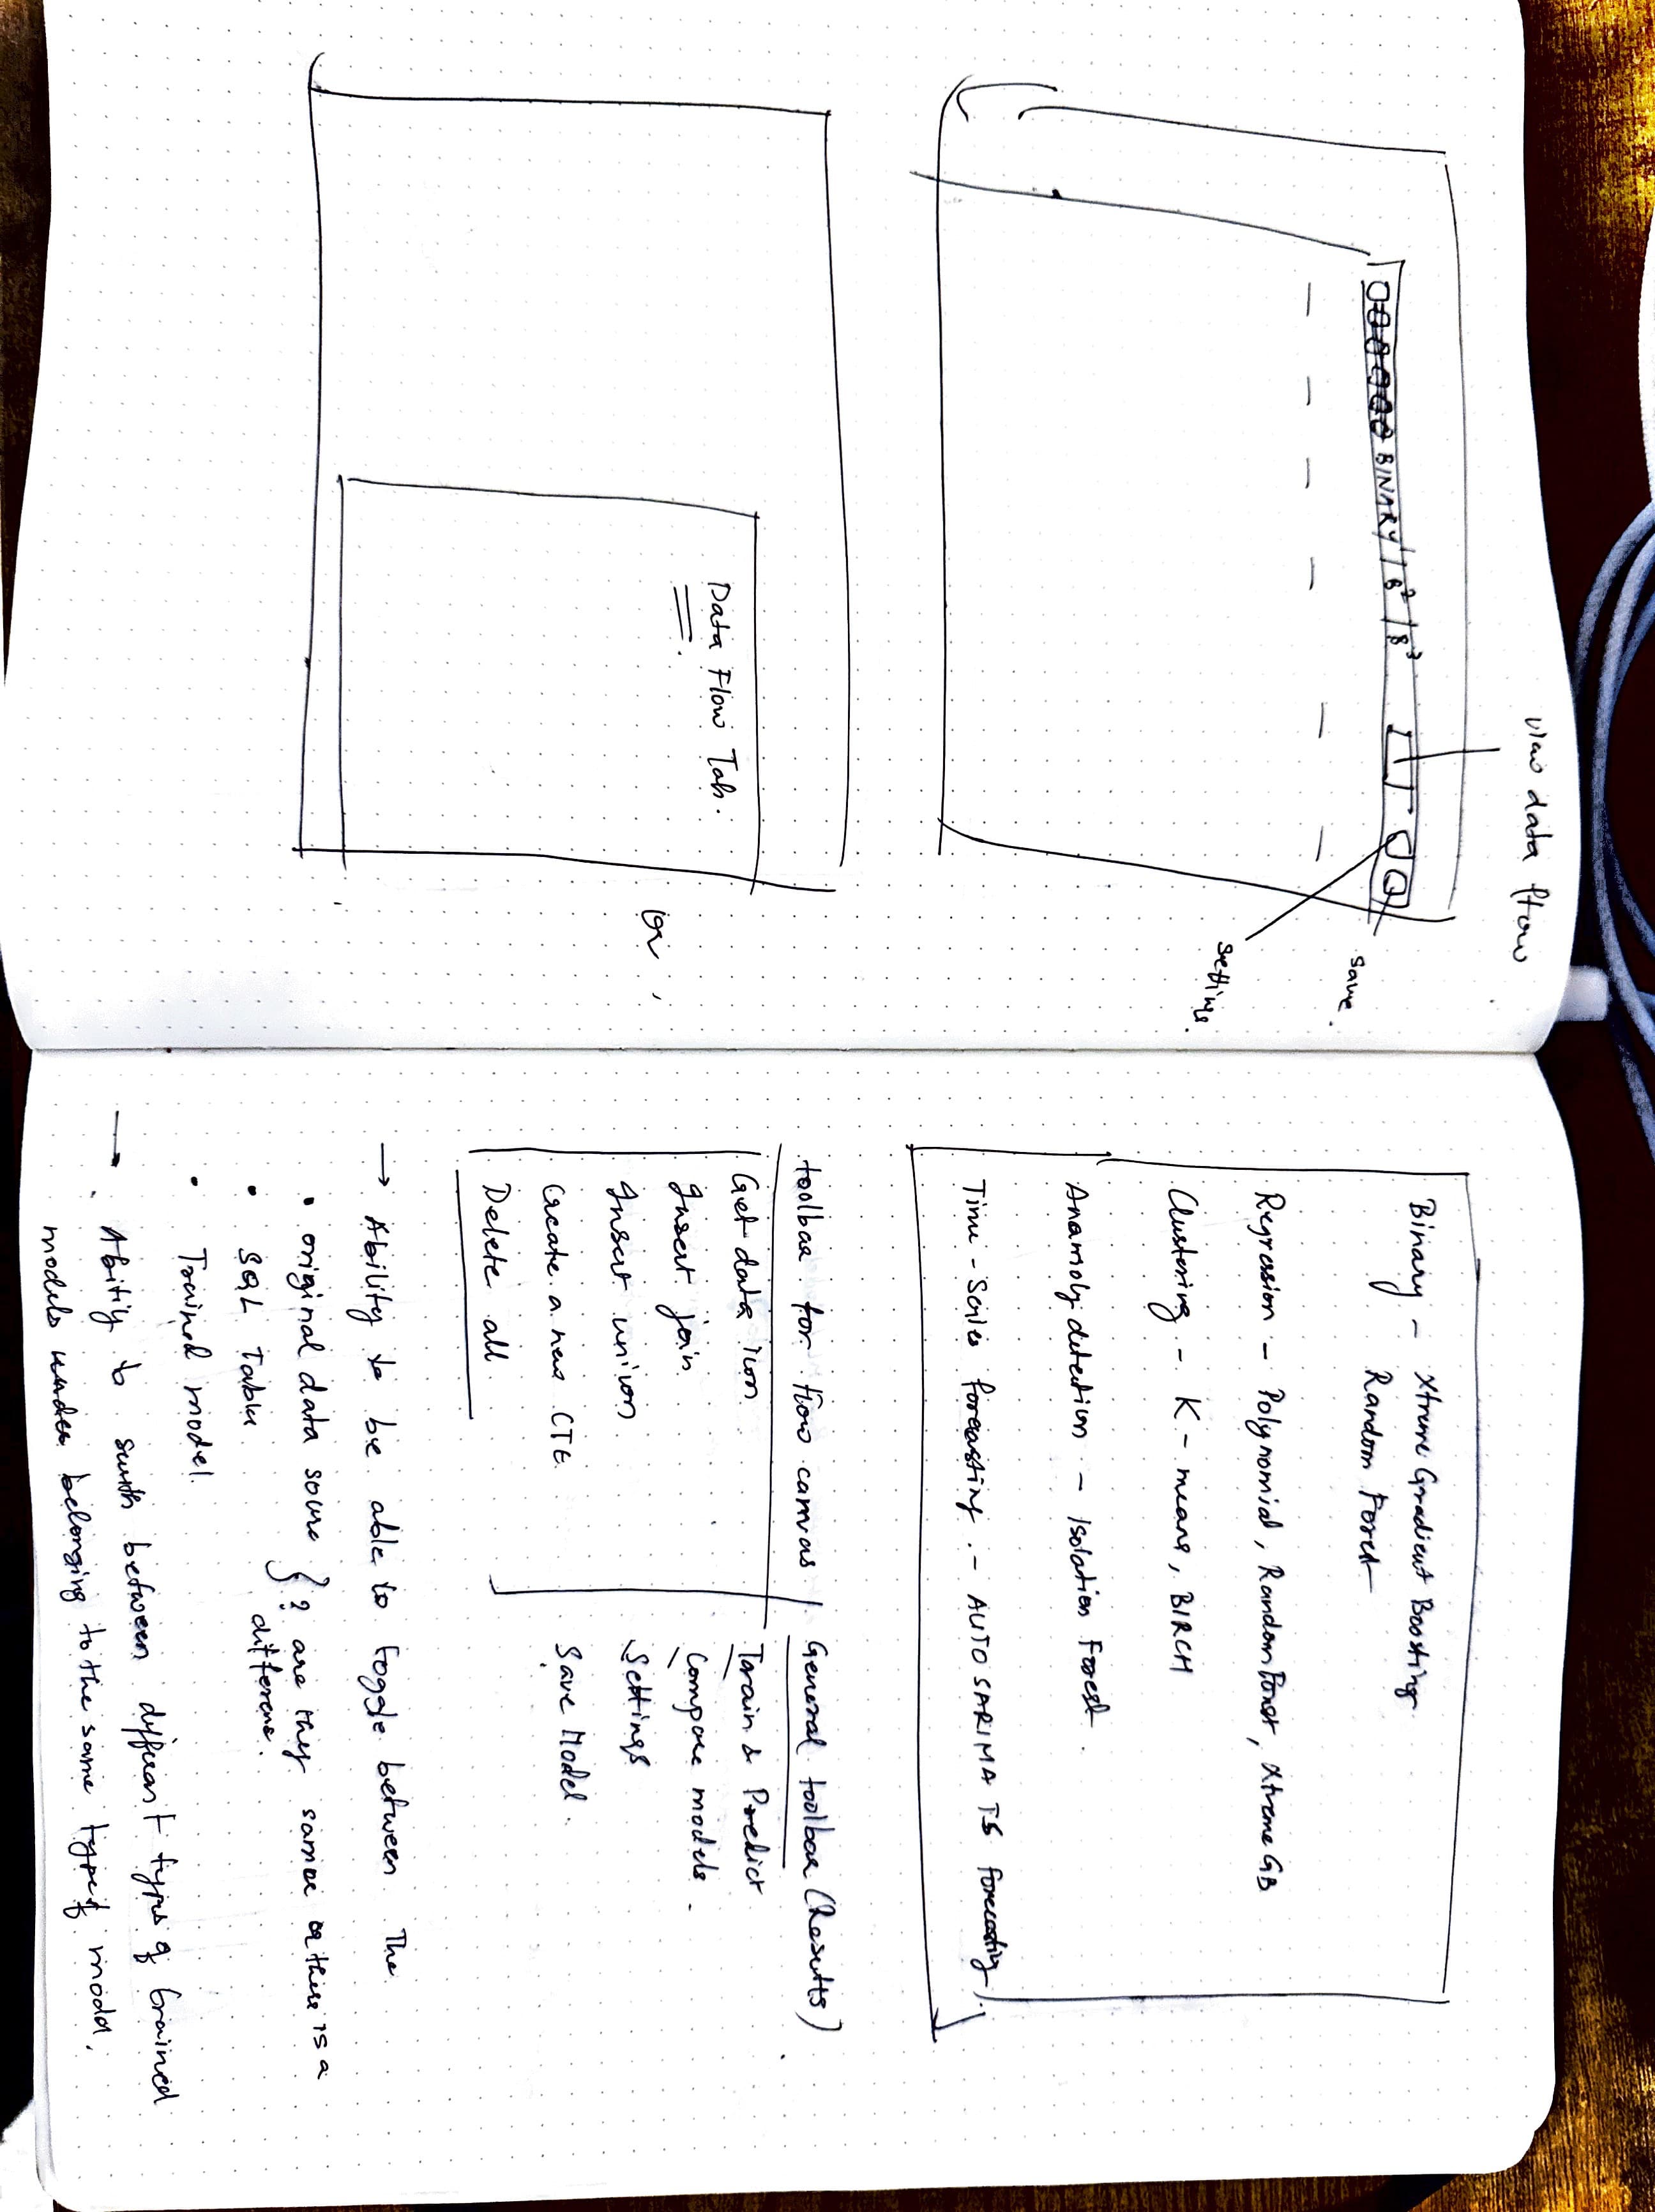 view data flow
BINARY / B² / B³
save.
settings.
Data Flow Tab.
or,
Binary - Xtreme Gradient Boosting
Random Forest
Regression - Polynomial, Random Forest, Xtreme GB
Clustering - K-means, BIRCH
Anamoly detection - Isolation Forest.
Time-Series forecasting. - AUTO SARIMA TS forecasting.
toolbar for flow canvas
Get data icon
Insert join
Insert union
Create a new CTE
Delete all
General toolbar (Results)
Train & Predict
Compare models.
Settings
Save Model.
→ Ability to be able to toggle between The
• original data source } ? are they same or there is a
• SQL Table difference.
• Trained model.
→ Ability to between different types of trained
models under belonging to the same type of model.